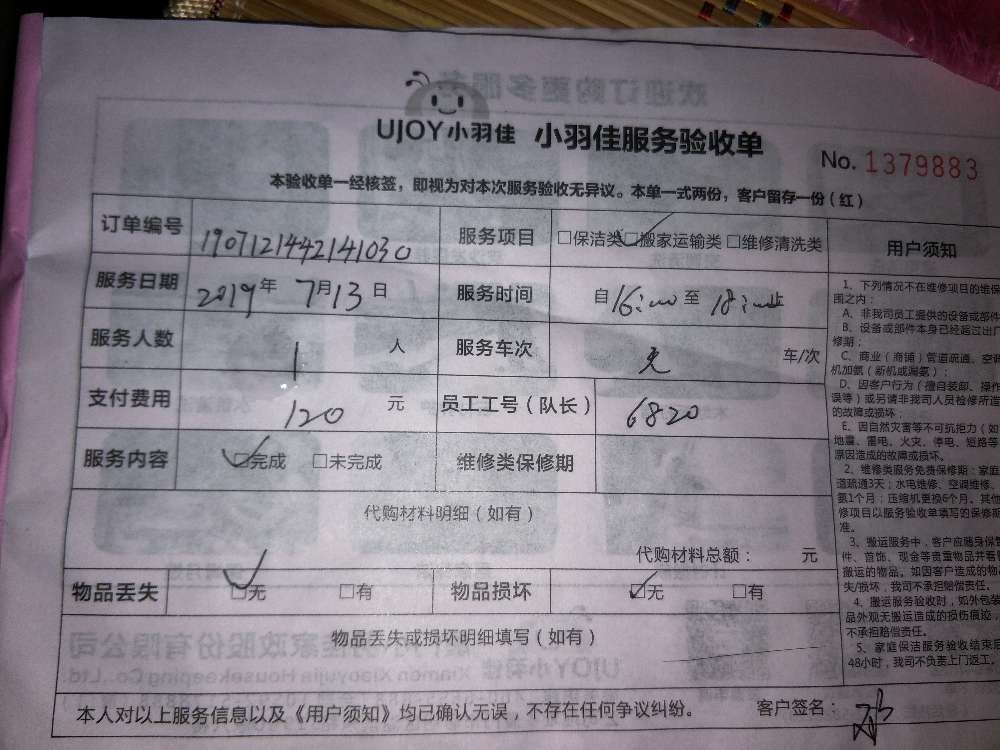 UJOY小羽佳 小羽佳服务验收单
No. 1379883
本验收单一经核签，即视为对本次服务验收无异议。本单一式两份，客户留存一份（红）
订单编号 1907121442141030 服务项目 □保洁类 ☑搬家运输类 □维修清洗类 用户须知
服务日期 2019年 7月13日 服务时间 自16:00至 18:00止
服务人数 1 人 服务车次 无 车/次
支付费用 120 元 员工工号（队长） 6820
服务内容 ☑完成 □未完成 维修类保修期
代购材料明细（如有）
代购材料总额： 元
物品丢失 ☑无 □有 物品损坏 ☑无 □有
物品丢失或损坏明细填写（如有）
本人对以上服务信息以及《用户须知》均已确认无误，不存在任何争议纠纷。 客户签名：
1、下列情况不在维修项目的维保
围之内：
A、非我司员工提供的设备或部件
B、设备或部件本身已经超过出厂
修期；
C、商业（商铺）管道疏通、空调
机加氨（新机或漏氨）；
D、因客户行为（擅自装卸、操作
误等）或另请非我司人员检修所造
的故障或损坏；
E、因自然灾害等不可抗拒力（如
地震、雷电、火灾、停电、短路等
原因造成的故障或损坏。
2、维修类服务免费保修期：家庭
道疏通3天；水电维修、空调维修、
氨1个月；压缩机更换6个月。其他
修项目以服务验收单填写的保修期
准。
3、搬运服务中，客户应随身保管
件、首饰、现金等贵重物品并看
搬运的物品。如因客户造成的物品
失/损坏，我司不承担赔偿责任。
4、搬运服务验收时，如外包装
品外观无搬运造成的损伤痕迹，
不承担赔偿责任。
5、家庭保洁服务验收结束后
48小时，我司不负责上门返工。